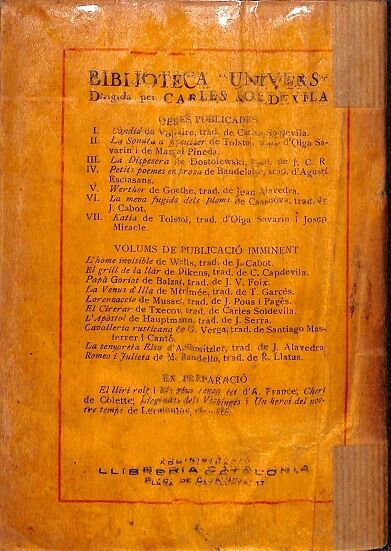 BIBLIOTECA "UNIVERS"
Dirigida per CARLES SOLDEVILA
OBRES PUBLICADES
I. Càndid de Voltaire, trad. de Carles Soldevila.
II. La Sonata a Kreutzer de Tolstoi, trad. d'Olga Savarin i de Marçal Pineda.
III. La Dispesera de Dostoiewski, trad. de J. C. R.
IV. Petits poemes en prosa de Baudelaire, trad. d'Agustí Esclasans.
V. Werther de Goethe, trad. de Joan Alavedra.
VI. La meva fugida dels ploms de Casanova, trad. de J. Cabot.
VII. Katia de Tolstoi, trad. d'Olga Savarin i Josep Miracle.
VOLUMS DE PUBLICACIÓ IMMINENT
L'home invisible de Wells, trad. de J. Cabot.
El grill de la llar de Dikens, trad. de C. Capdevila.
Papà Goriot de Balzac, trad. de J. V. Foix.
La Venus d'Illa de Mérimée, trad. de T. Garcés.
Lorenzaccio de Musset, trad. de J. Pous i Pagès.
El Cirerar de Txecov, trad. de Carles Soldevila.
L'Apòstol de Hauptmann, trad. de J. Serra.
Cavalleria rusticana de G. Verga, trad. de Santiago Masferrer i Cantó.
La senyoreta Elsa d'A. Shnitzler, trad. de J. Alavedra
Romeo i Julieta de M. Bandello, trad. de R. Llatas.
EN PREPARACIÓ
El lliri roig i Els déus tenen set d'A. France; Cheri
de Colette; Llegendes dels Vikings i Un heroi del nostre temps de Lermontov, etc., etc.
ADMINISTRACIÓ
LLIBRERIA CATALÒNIA
PLAÇA DE CATALUNYA, 17